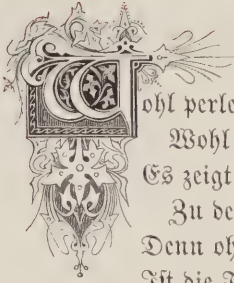 Wohl perle
Wohl
Es zeigt
Zu de
Denn oh
Ist die